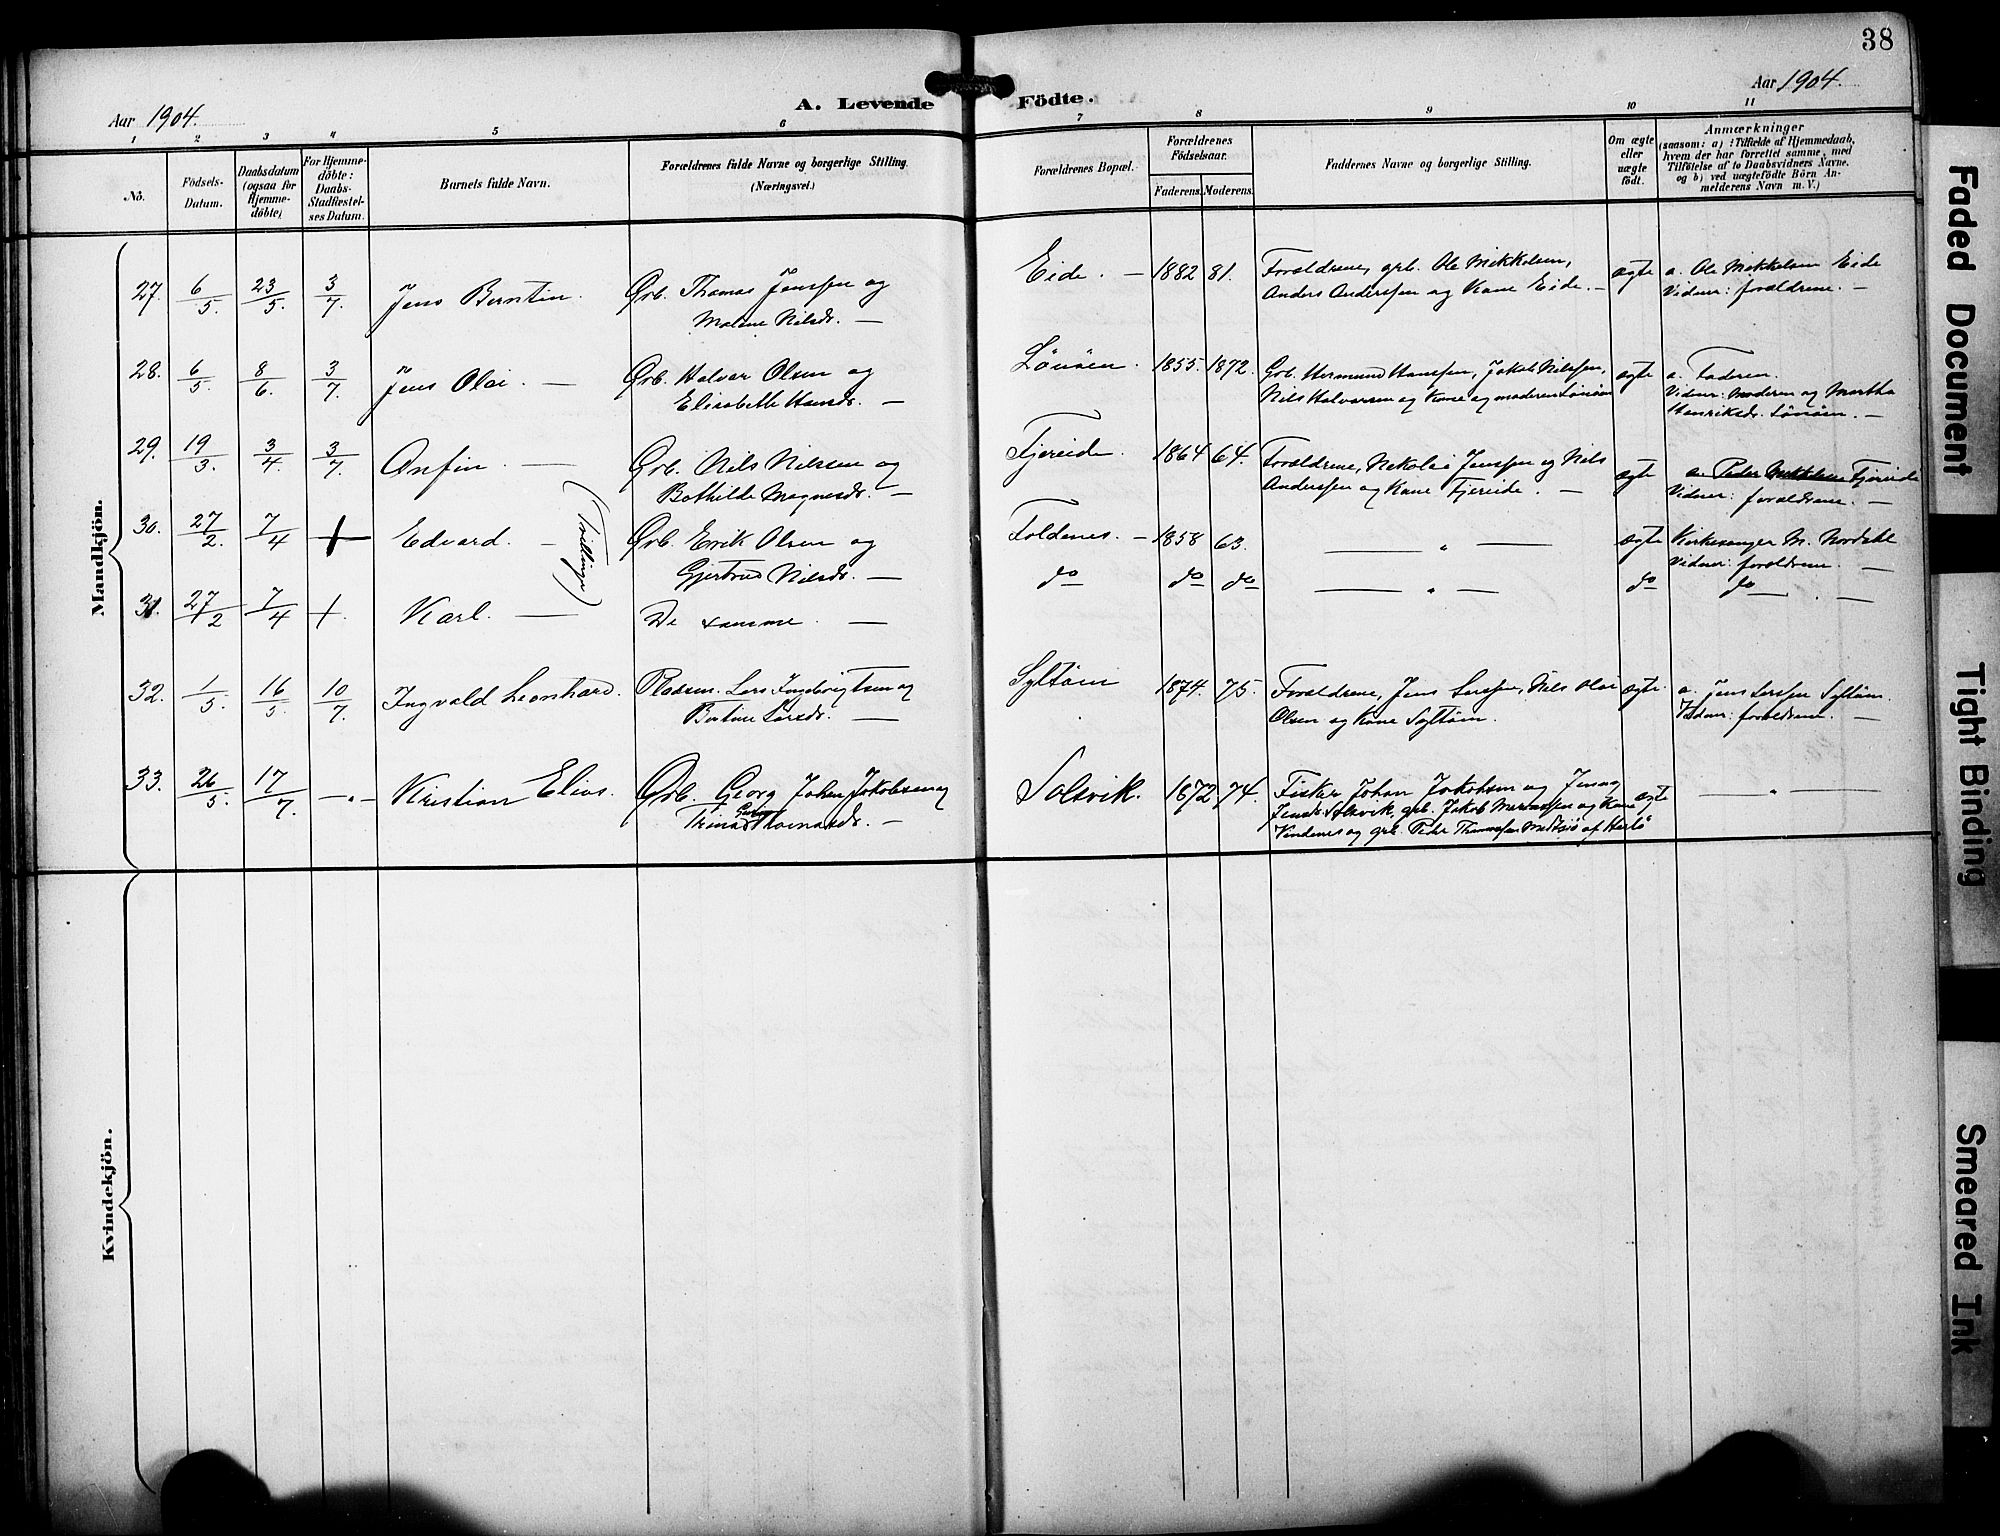 38
Aar 1904.
A. Levende Födte.
Aar 1904.
1 2 3 4 5 6 7 8 9 10 11
No.
Födsels-
Datum.
Daabsdatum
(ogsaa for
Hjemme-
döbte)
For Hjemme-
döbte:
Daabs-
Stadfæstel-
ses Datum.
Barnets fulde Navn.
Forældrenes fulde Navne og borgerlige Stilling.
(Næringsvei.)
Forældrenes Bopæl.
Forældrenes
Födselsaar.
Faderens. Moderens.
Faddernes Navne og borgerlige Stilling.
Om ægte
eller
uægte
födt.
Anmærkninger
(saasom: a) i Tilfælde af Hjemmedaab,
hvem der har forrettet samme, med
Tilföielse af to Daabsvidners Navne.
og b) ved uægtefödte Börn An-
melderens Navn m. V.)
Mandkjön.
27. 6/5. 23/5. 3/7. Jens Berntin. Grb. Thomas Jenssen og
Malene Nilsdr. —
Eide. — 1882 81. Forældrene, grb. Ole Mikkelsen,
Anders Anderssen og Kone Eide. — ægte a. Ole Mikkelsen Eide
Vidner: forældrene. —
28. 6/5. 8/6. 3/7. Jens Olai. — Grb. Halvor Olsen og
Elisabeth Hansdr. —
Lönöen. 1855. 1872. Grb. Hermund Hanssen, Jakob Nilssen,
Nils Halvorsen og Kone og moderen Lönöen ægte a. Faderen.
Vidner: Moderen og Martha
Henriksdr. Lönöen. —
29. 19/3. 3/4. 3/7. Anfin. — Grb. Nils Nilssen og
Bothilde Magnesdr. —
Fjereide. 1864 64. Forældrene, Nikolai Jenssen og Nils
Anderssen og Kone Fjereide. — ægte a. Peder Mikkelsen Fjereide
Vidner: forældrene. —
30. 27/2. 7/4 + Edvard. — (Tvillinger) Grb. Erik Olsen og
Gjertrud Nilsdr. —
Foldenes. — 1858 63. — " — ægte Kirkesanger M. Nordahl
Vidner: forældrene. —
31. 27/2 7/4 +. Karl. — De samme. —
do do do — " — do do —
32. 1/5. 16/5. 10/7. Ingvald Leonhard. Pladsm. Lars Ingebrigtsen og
Bertine Larsdr. —
Syltöen 1874. 75. Forældrene, Jens Larssen, Nils Olai
Olsen og Kone Syltöen. ægte. a. Jens Larssen Syltöen
Vidner: forældrene. —
33. 26/5. 17/7. — " — Kristian Elias. Grb. Georg Johan Jakobsen og
Trina Thomasdr. —
Solsvik. 1872 74. Fisker Johan Jakobsen og Jensog
Jensdr. Solsvik, grb. Jakob og Kone
Vindenes og grb. Peder Thomassen af Herlö ægte — " —
Kvindekjön.
Faded Document
Tight Binding
Smeared Ink